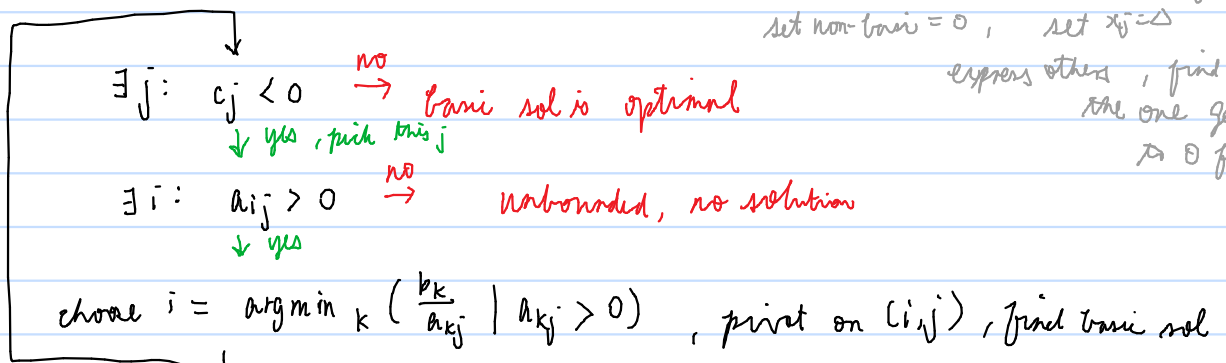 set non-basic = 0, set xj = Δ
express others, find
the one g
to 0 f
∃ j: cj < 0 no → basic sol is optimal
↓ yes, pick this j
∃ i: aij > 0 no → unbounded, no solution
↓ yes
choose i = argmin k ( bk / akj | akj > 0 ), pivot on (i,j), find basic sol